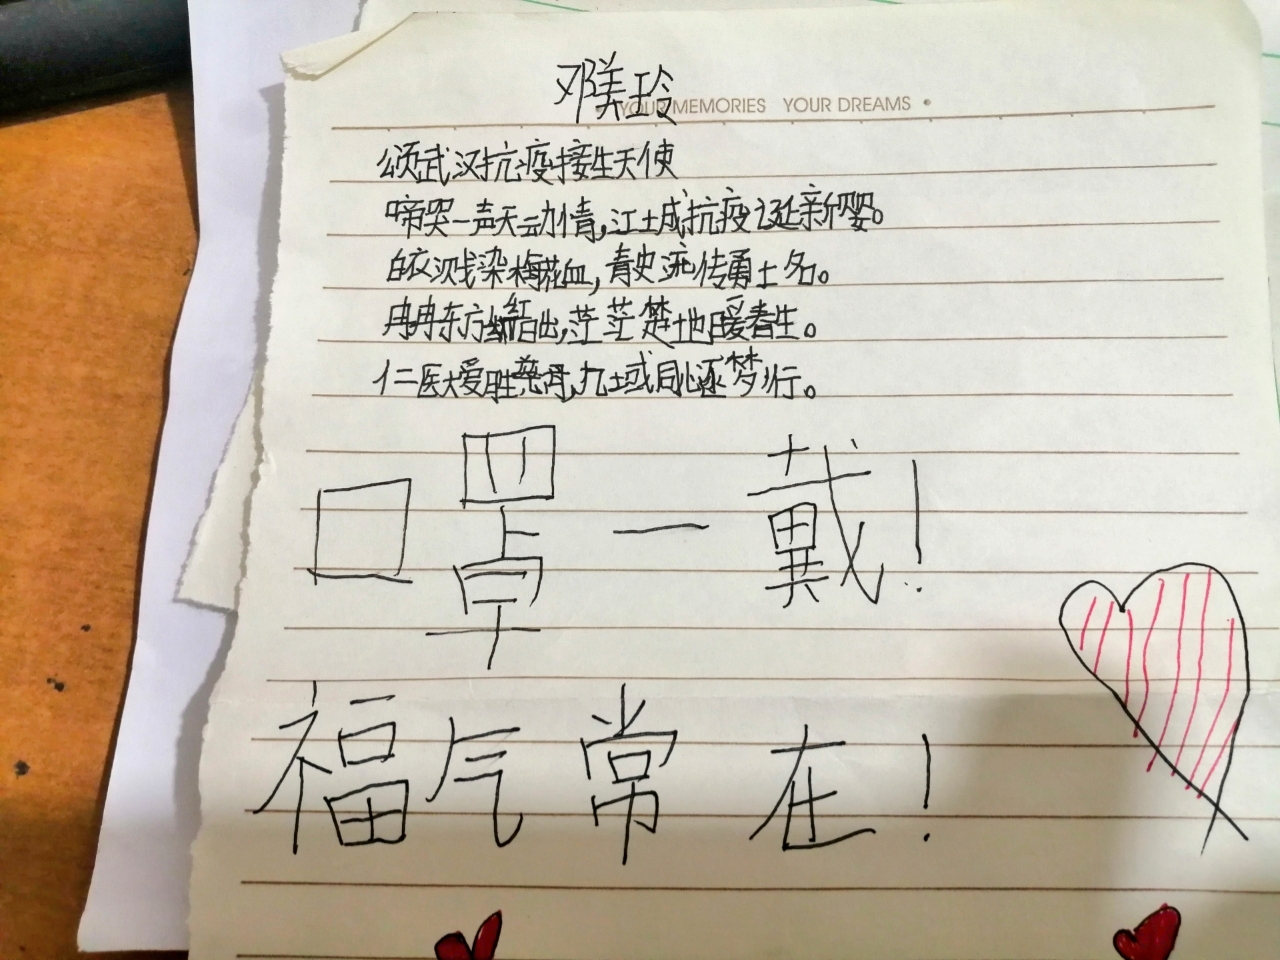 邓美玲
YOUR MEMORIES YOUR DREAMS
颂武汉抗疫接生天使
啼哭一声天动情,江城抗疫诞新婴。
白衣溅染梅花血,青史流传勇士名。
冉冉东方红日出,茫茫楚地暖春生。
仁医大爱胜慈母,九域同心逐梦行。
口罩一戴!
福气常在!